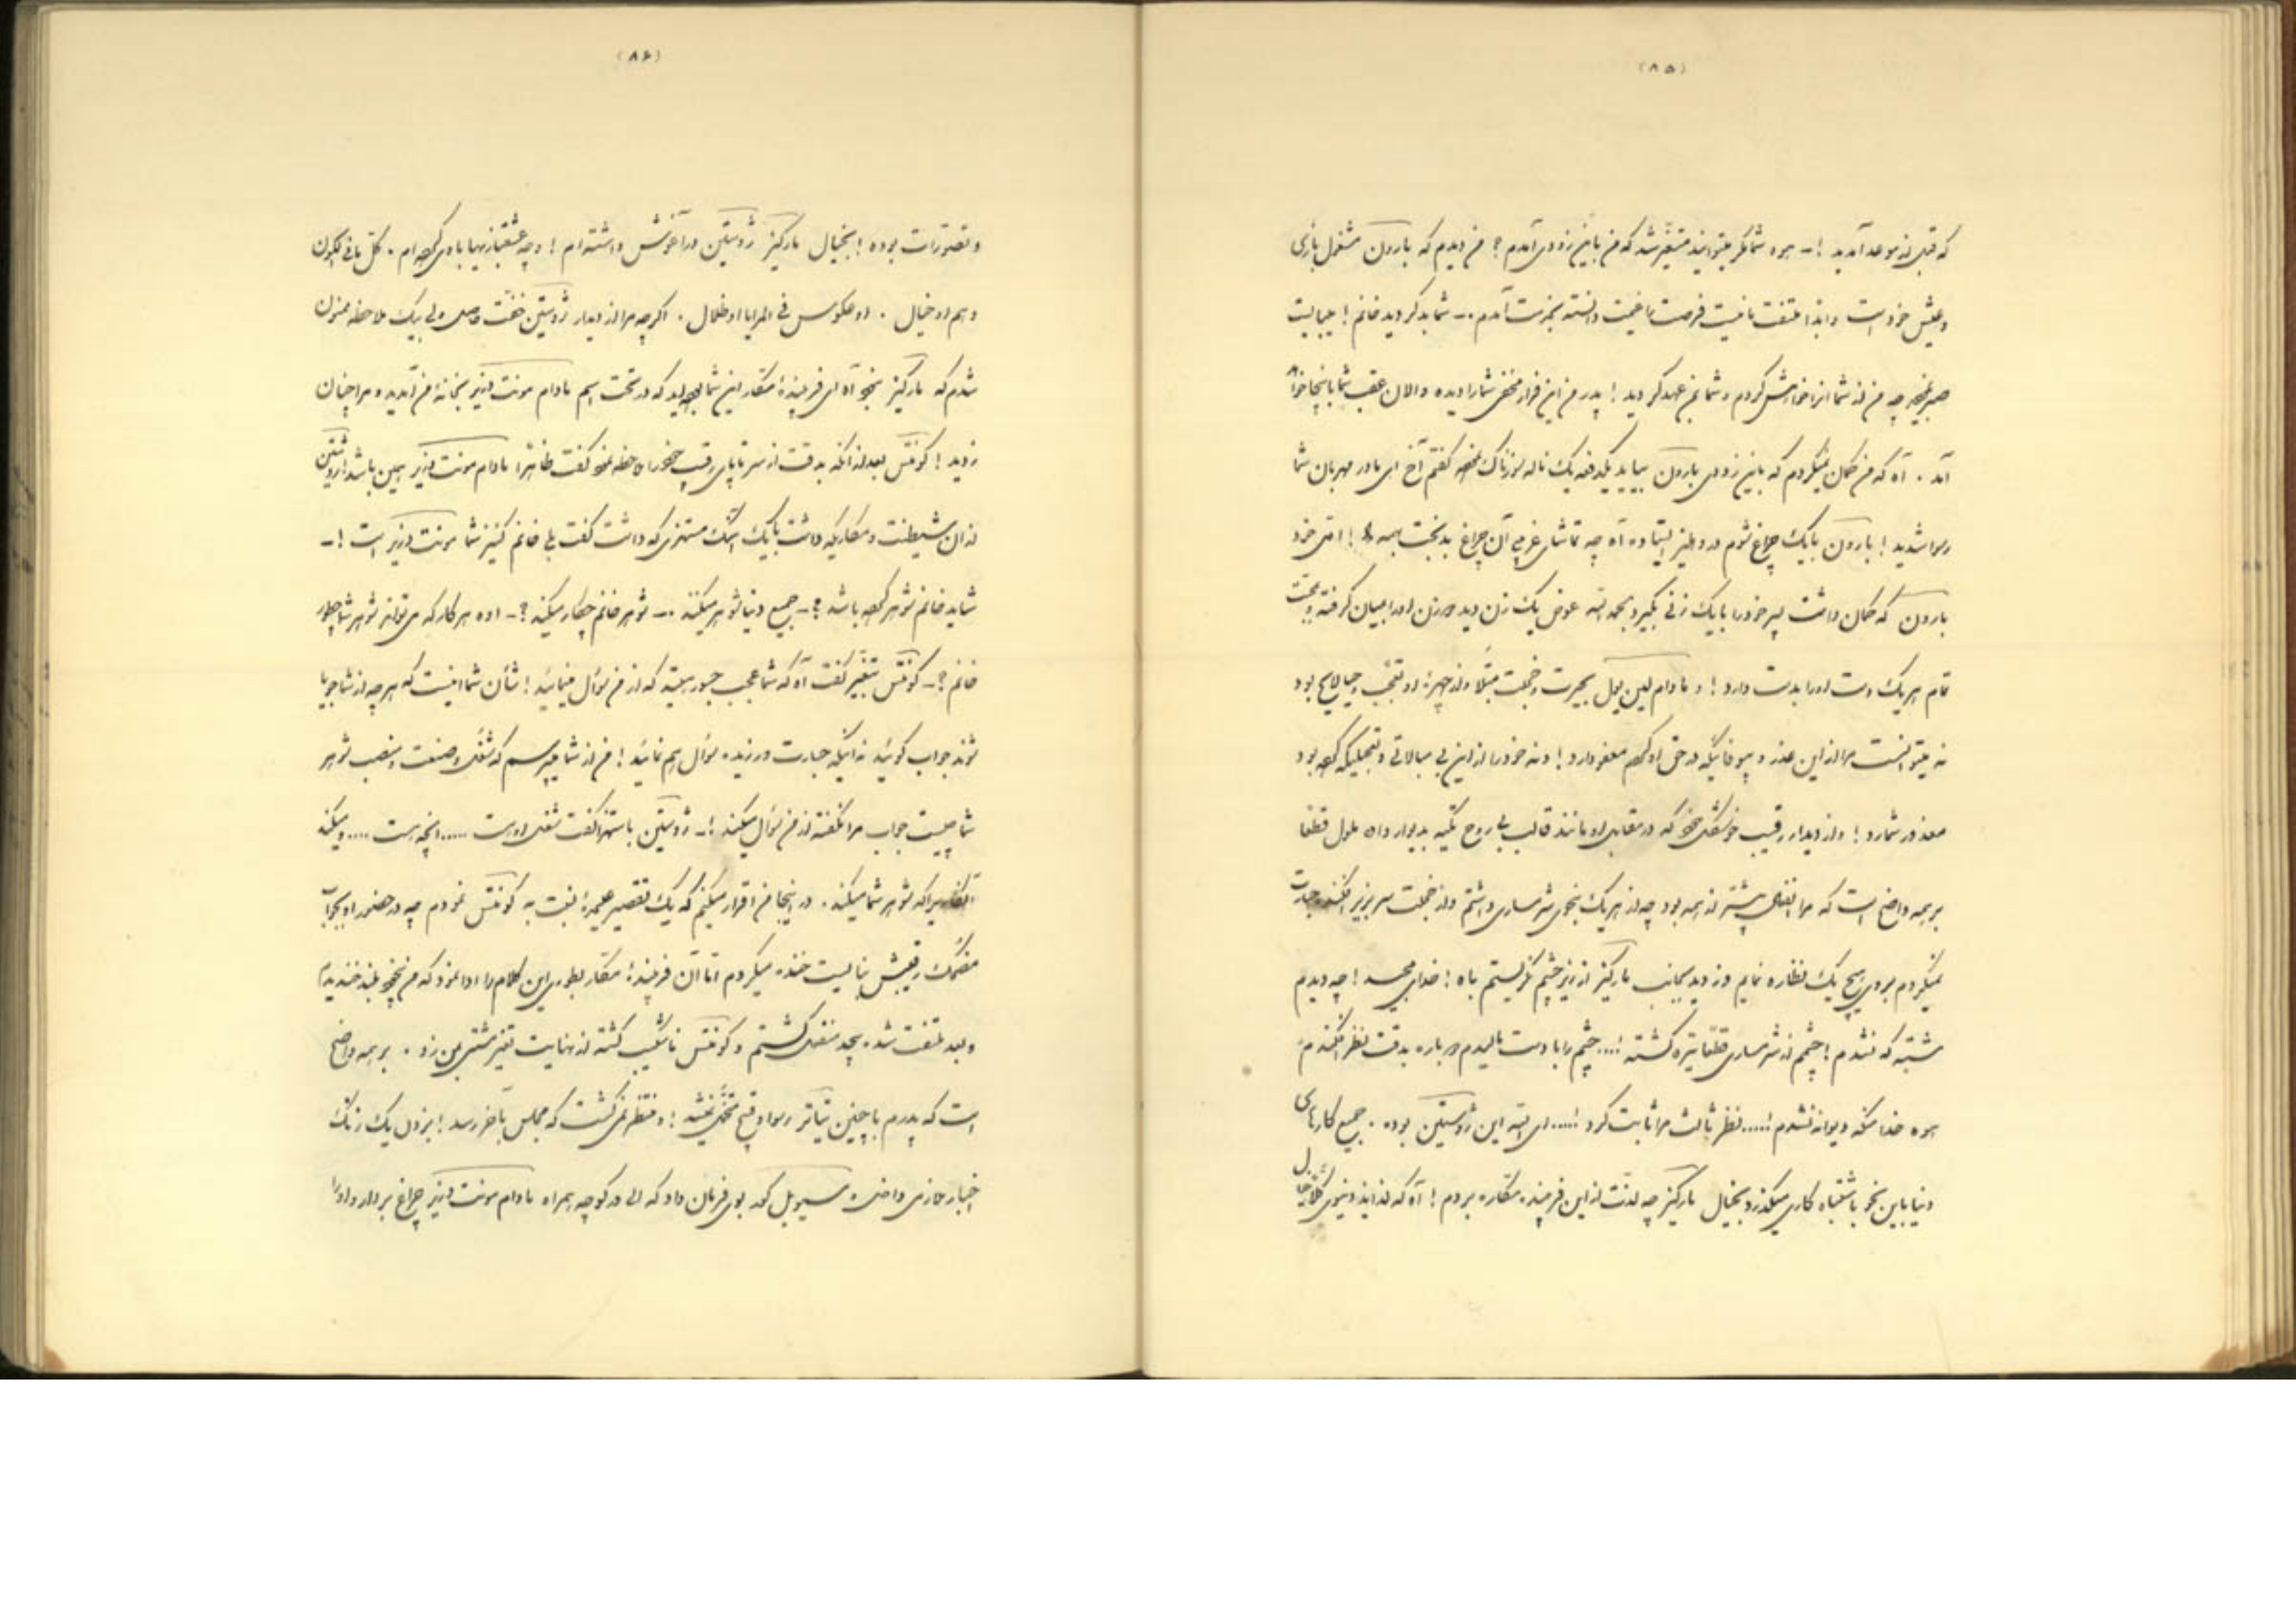 (۸۵)
که قبل از موعد آمدید !- هوه شما مگر میتوانید متغیر شد که من باین زودی آمدم ؟ من دیدم که بارون مشغول بازی
و عیش خود است و ابدا ملتفت ما نیست فرصت را غنیمت دانسته بخدمت آمدم .- شما بد کردید خانم ! میبایست
صبر چه من از شما انرا خواهش کردم و شما بمن عهد کردید ! پدر من این فرار مخفی شما را دیده و الان عقب شما باینجا خواهد
آمد . آه که من گمان نمیکردم که باین زودی بارون بیاید یکدفعه یک ناله سوزناک گفتم آخ ای مادر مهربان شما
رسوا شدید ! بارون با یک چراغ شوم در دهلیز ایستاده آه چه تماشای غریبی آن چراغ بدبخت بهمه ! اتی خود
بارون که گمان داشت پسر خود را با یک زنی بگیرد بحمد الله عوض یک زن دید دو زن او را بمیان گرفته و بمحبت
تمام هر یک دست او را بدست دارد ! و مادام لین یول بحیرت و خجلت مبتلا و از چهره او تعجب و حیا لایح بود
نه میتوانست مرا از این عذر و بیوفائیکه در حق او معفو دارد ! و نه خود را از این بی مبالاتی و تعجیلیکه کرده بود
معذور شمارد ! و از دیدار رقیب خوشگل که در مقابل او مانند قالب بی روح تکیه بدیوار داده ملول قطعا
بر همه واضح است که مرا انفعال بیشتر از همه بود چه از هر یک بنحوی شرمساری داشتم و از خجلت سر بزیر افکنده جسارت
نمیکردم بروی هیچ یک نظاره نمایم دزدیده بجانب مارکیز از زیر چشم نگریستم باه ! خدای مجید ! چه دیدم
مشتبه که نشدم ! چشمم از شرمساری قطعا تیره گشته !.... چشم را با دست مالیدم دوباره بدقت نظر افکندم
هوه خدا مگه دیوانه نشدم !..... نظر ثالث مرا ثابت کرد !..... ای الله این ژوستین بوده . جمیع کارهای
دنیا باین نحو باشتباه کاری میگذرد بخیال مارکیز چه لذت از این فریبنده مکاره بردم ! آه که لذایذ دنیوی کلا خیال
(۸۶)
و تصورات بوده ! بخیال مارکیز ژوستین در آغوش داشته ام ! و چه عشقبازیها با وی کرده ام . کل ما فی الکون
وهم او خیال . او عکوس فی المرایا او ظلال . اگرچه مرا از دیدار ژوستین خفت حاصل ولی بیک ملاحظه ممنون
شدم که مارکیز آه ای فریبندهٔ مکار این شما که در تحت اسم مادام مونت دزیر بخانهٔ من آمدید و مرا چنان
زدید ! کونتس بعد از انکه بدقت از سر تا پای رقیب خود را ملاحظه نمود گفت ظاهرا مادام مونت دزیر همین باشد ! ژوستین
از آن شیطنت و مکاریکه داشت با یک آهنگ مستهزی که داشت گفت بلی خانم کنیز شما مونت دزیر است !-
شاید خانم شوهر کرده باشد ؟- جمیع دنیا شوهر میکنند .- شوهر خانم چکار میکند ؟- اوه هر کار که می تواند شوهر شما چطور
خانم ؟- کونتس بتغیر گفت آه که شما عجب جسور هستید که از من سؤال مینمائید ! شأن شما اینست که هر چه از شما جویا
شوند جواب گوئید نه اینکه جسارت ورزیده سؤال هم نمائید ! من از شما میپرسم که شغل و صنعت و منصب شوهر
شما چیست جواب مرا نگفته از من سؤال میکنید !- ژوستین باستهزا گفت شغل اوست ..... انچه هست .... و میکند
آنکار را که شوهر شما میکند . در اینجا من اقرار میکنم که یک تقصیر عمده نسبت به کونتس نمودم چه در حضور او بجواب
مضحک رقیبش نبایست خنده میکردم اما آن فریبندهٔ مکار بطوری این کلام را ادا نمود که من بلند خندیدم
و بعد ملتفت شده بیحد منفعل گشتم و کونتس ناشکیب گشته از نهایت تغیر مشتی بمن زد . بر همه واضح
است که پدرم با چنین تیاتر رسوا و قبیح متحمل نمیشد ! و منتظر نمی گشت که مجلس بآخر رسد ! بزدن یک زنگ
اخبار حاضر بوی فرمان داد که الی در کوچه همراه مادام مونت دزیر چراغ بردار و او را